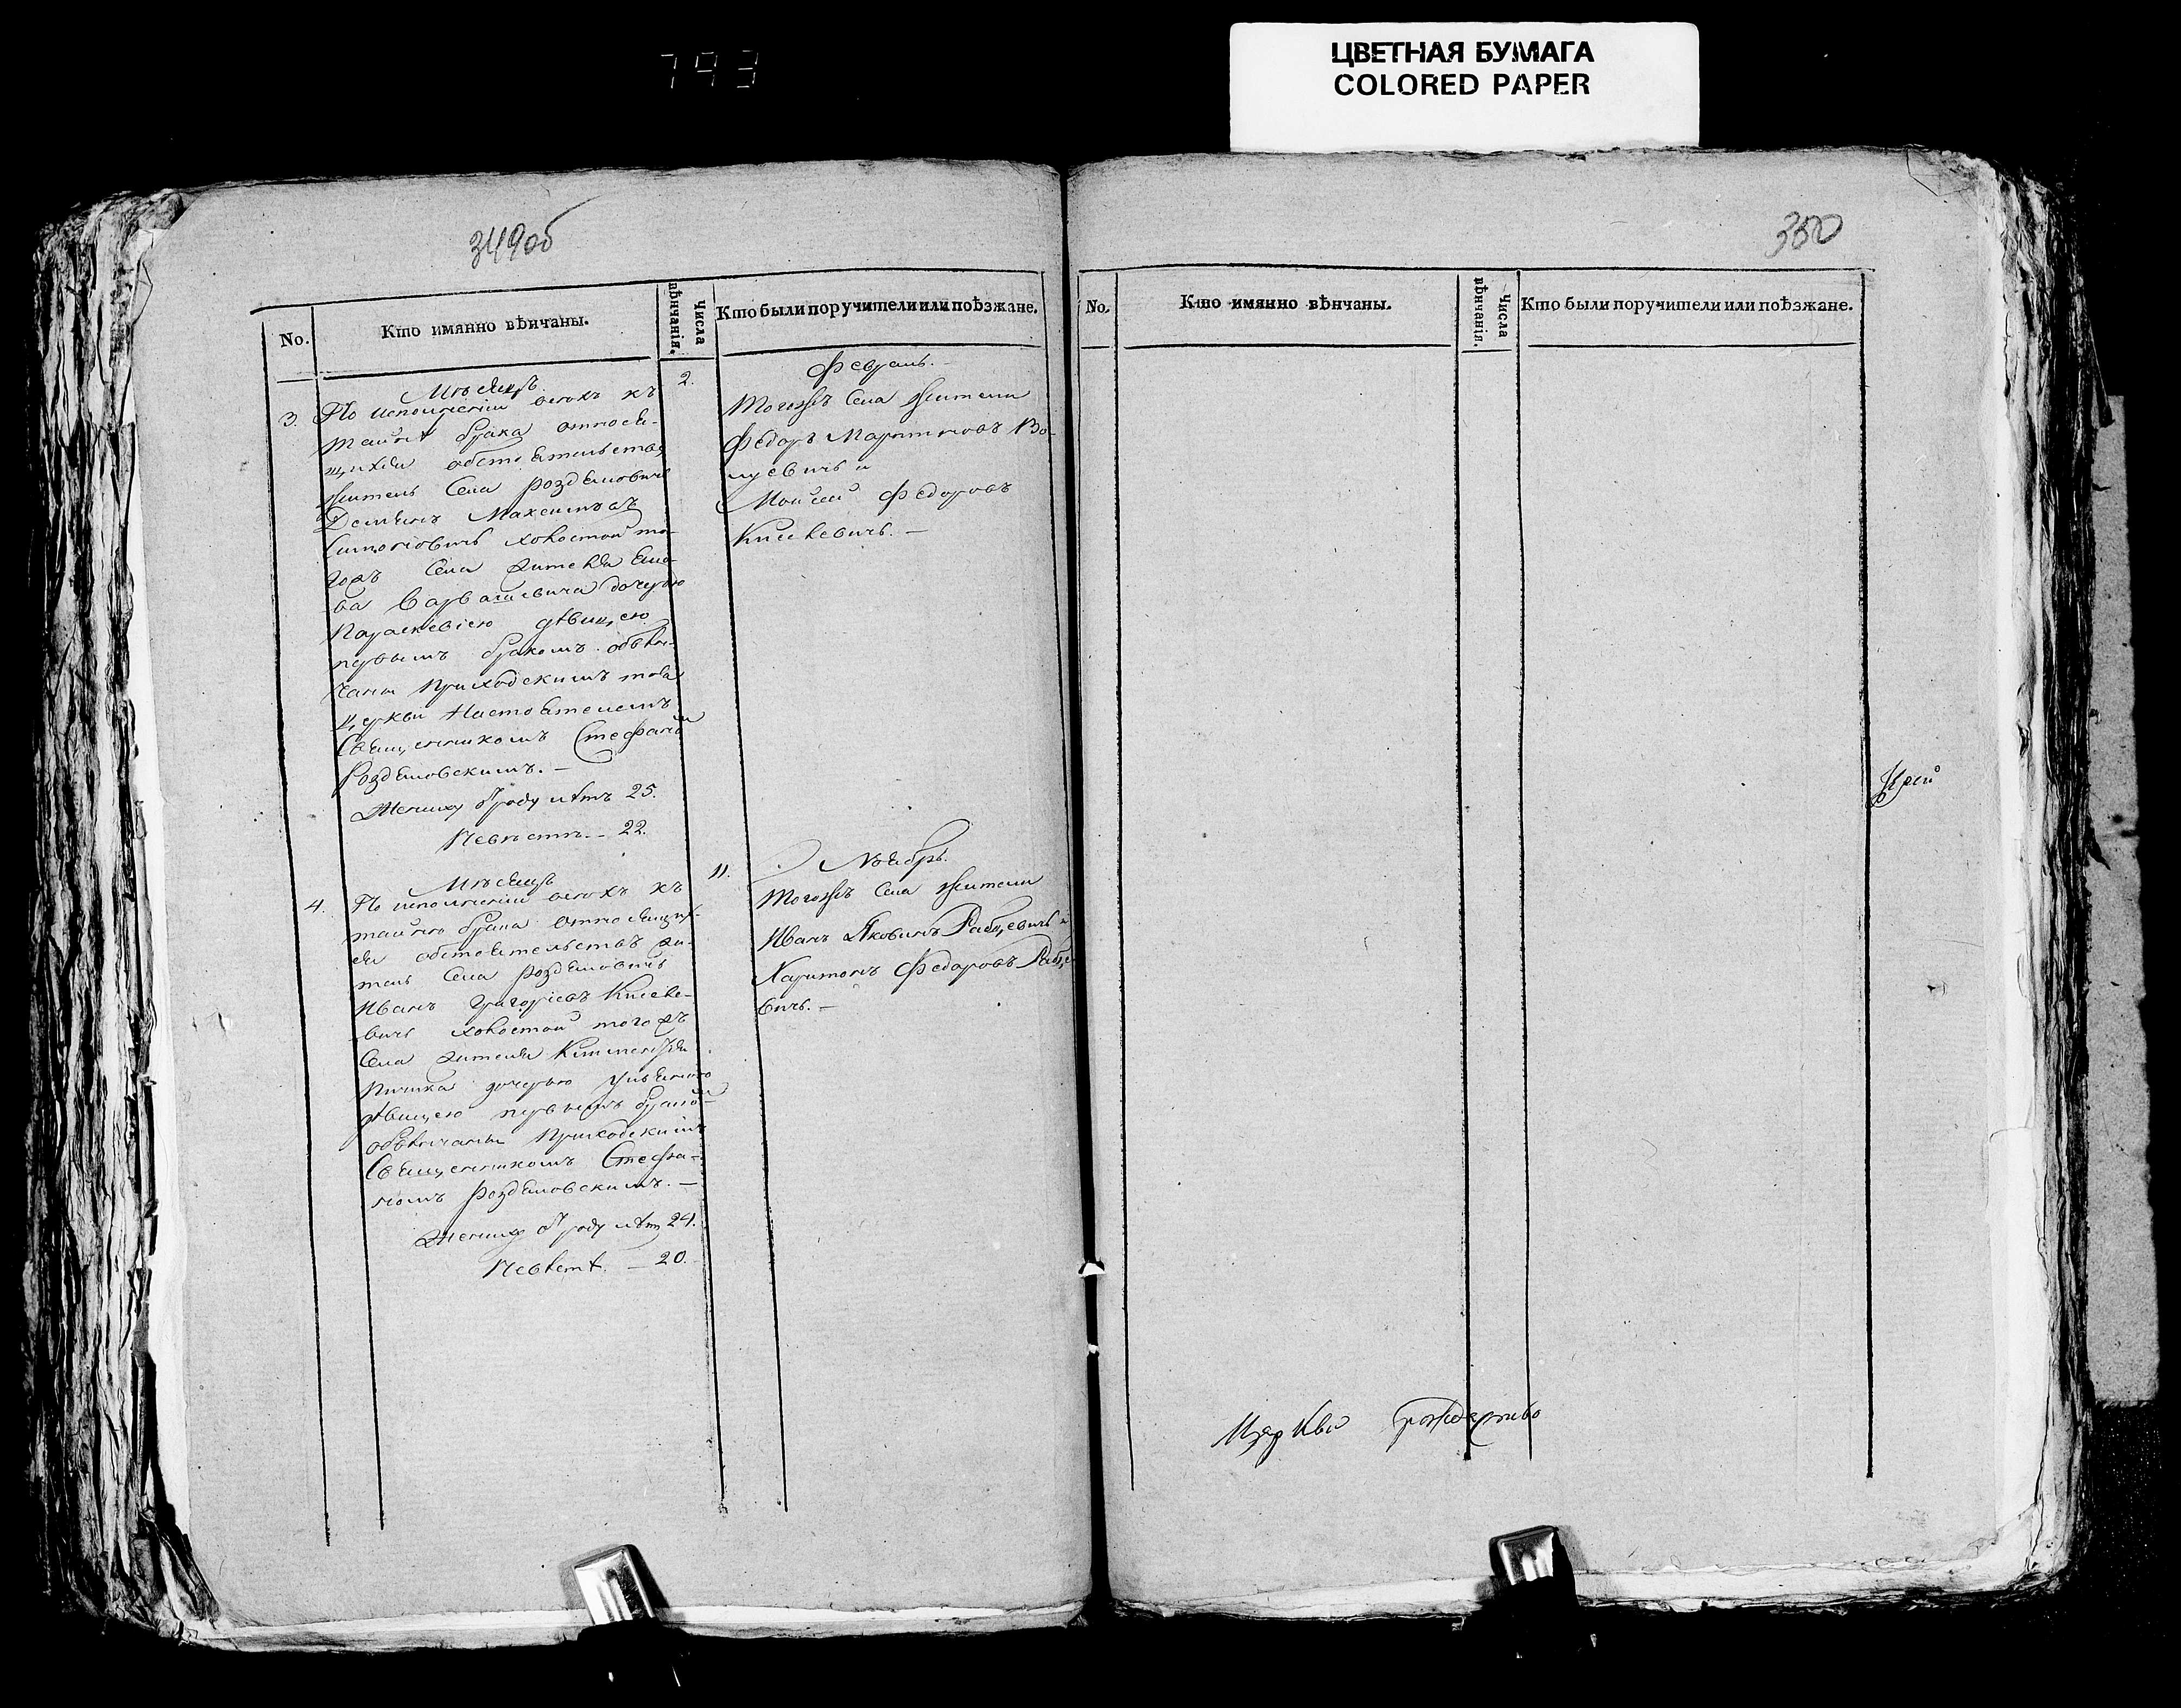 793
ЦВЕТНАЯ БУМАГА
COLORED PAPER
349об
No.
Кто имянно вѣнчаны.
Числа вѣнчанія.
Кто были поручители или поѣзжане.
Мѣсяцъ
2.
Февраль. —
3.
По исполненіи всѣхъ къ
тайнѣ брака относя-
щихся обстоятельствъ
житель Села Роздяловичь
Демьянъ Максимовъ
холостой то-
гожъ Села жителя
дочерью
Параскевіею дѣвицею
первымъ бракомъ обвѣн-
чаны Приходскимъ тоея
Церкви Настоятелемъ
Священникомъ Стефаномъ
Роздяловскимъ. —
Жениху отъ роду лѣтъ 25.
Невѣстѣ. — 22.
Тогожъ Села жители
Федоръ Мартиновъ
и
Моисей Федоровъ
Кисевичь. —
Мѣсяцъ
11.
Ноябрь.
4.
По исполненіи всѣхъ къ
тайнѣ брака относящих-
ся обстоятельствъ жи-
тель Села Роздяловичь
Иванъ Григоріевъ Кисеве-
вичь холостой тогожъ
Села жителя
дочерью
дѣвицею первымъ бракомъ
обвѣнчаны Приходскимъ
Священникомъ Стефа-
номъ Роздяловскимъ. —
Жениху отъ роду лѣтъ 24.
Невѣстѣ. — 20.
Тогожъ Села жители
Иванъ Яковинъ Рабцевичь и
Харитонъ Федоровъ Рабце-
вичь. —
350
No.
Кто имянно вѣнчаны.
Числа вѣнчанія.
Кто были поручители или поѣзжане.
Іерей
Церкви рождество